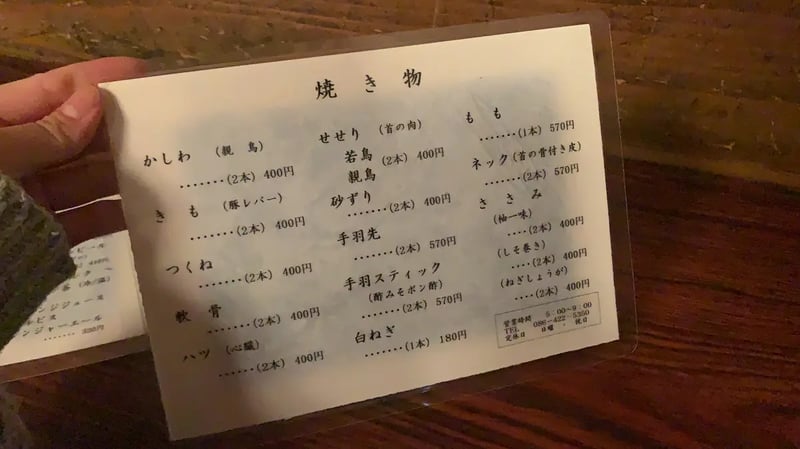 焼き物
かしわ (親鳥)
.......(2本) 400円
きも (豚レバー)
.......(2本) 400円
つくね
.......(2本) 400円
軟骨
.......(2本) 400円
ハツ (心臓)
.......(2本) 400円
せせり (首の肉)
若鳥
親鳥 (2本) 400円
砂ずり
.......(2本) 400円
手羽先
.......(2本) 570円
手羽スティック
(酢みそポン酢)
.......(2本) 570円
白ねぎ
.......(1本) 180円
もも
.......(1本) 570円
ネック (首の骨付き皮)
.......(2本) 570円
ささみ
(柚一味)
....(2本) 400円
(しそ巻き)
....(2本) 400円
(ねぎしょうが)
....(2本) 400円
営業時間 5:00〜9:00
TEL 086-422-5350
定休日 日曜・祝日
ンジジュース
ルピス
ンジャーエール
....... 330円